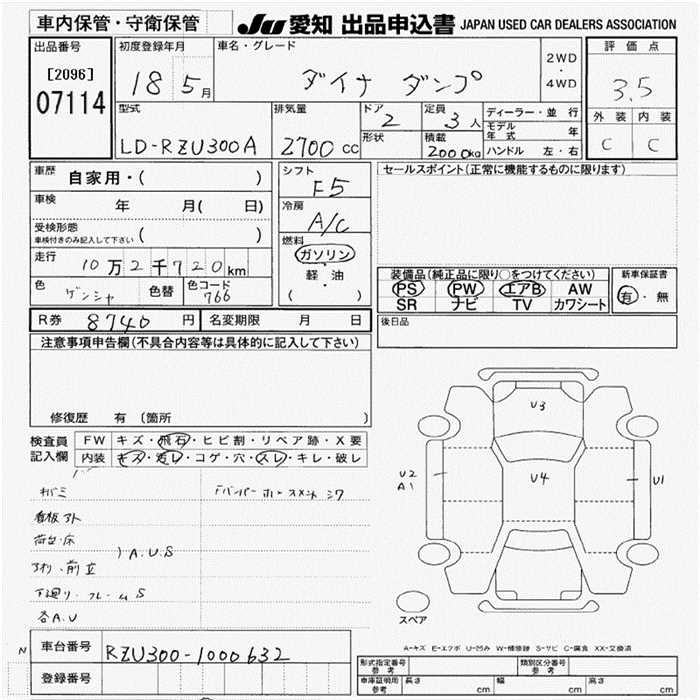 車内保管・守衛保管
JU 愛知 出品申込書 JAPAN USED CAR DEALERS ASSOCIATION
出品番号
[2096]
07114
初度登録年月
18 5月
車名・グレード
ダイナ ダンプ
2WD
・
4WD
評価点
3.5
外装 内装
C C
型式
LD-RZU300A
排気量
2700cc
ドア
2
形状
定員
3人
積載
2000kg
ディーラー・並行
モデル年式 年
ハンドル 左・右
車歴
自家用・( )
車検
年 月( 日)
受検形態
車検付きのみ記入して下さい ( )
走行
10万2千720km
色
ゲンシャ
色替
色コード
766
シフト
F5
冷房
A/C
燃料
ガソリン
・
軽油
・
( )
セールスポイント(正常に機能するものに限ります)
装備品(純正品に限り○をつけてください)
PS PW エアB AW
SR ナビ TV カワシート
新車保証書
有・無
後日品
R券 8740円
名変期限 月 日
注意事項申告欄(不具合内容等は具体的に記入して下さい)
修復歴 有 (箇所 )
検査員
記入欄
FW キズ・飛石・ヒビ割・リペア跡・X要
内装 キズ・汚レ・コゲ・穴・スレ・キレ・破レ
キバミ
Fバンパー ホースメント シワ
看板アト
荷台・床
アオリ・前立
) A.U.S
下廻リ・フレーム S
各A.U
U3
U4
U2
A1
U1
スペア
A-キズ E-エクボ U-凹み W-補修跡 S-サビ C-腐食 XX-交換済
N
車台番号 RZU300-1000632
登録番号
形式指定番号
参考
類別区分番号
参考
車庫証明用
参考
長さ cm 幅 cm 高さ cm